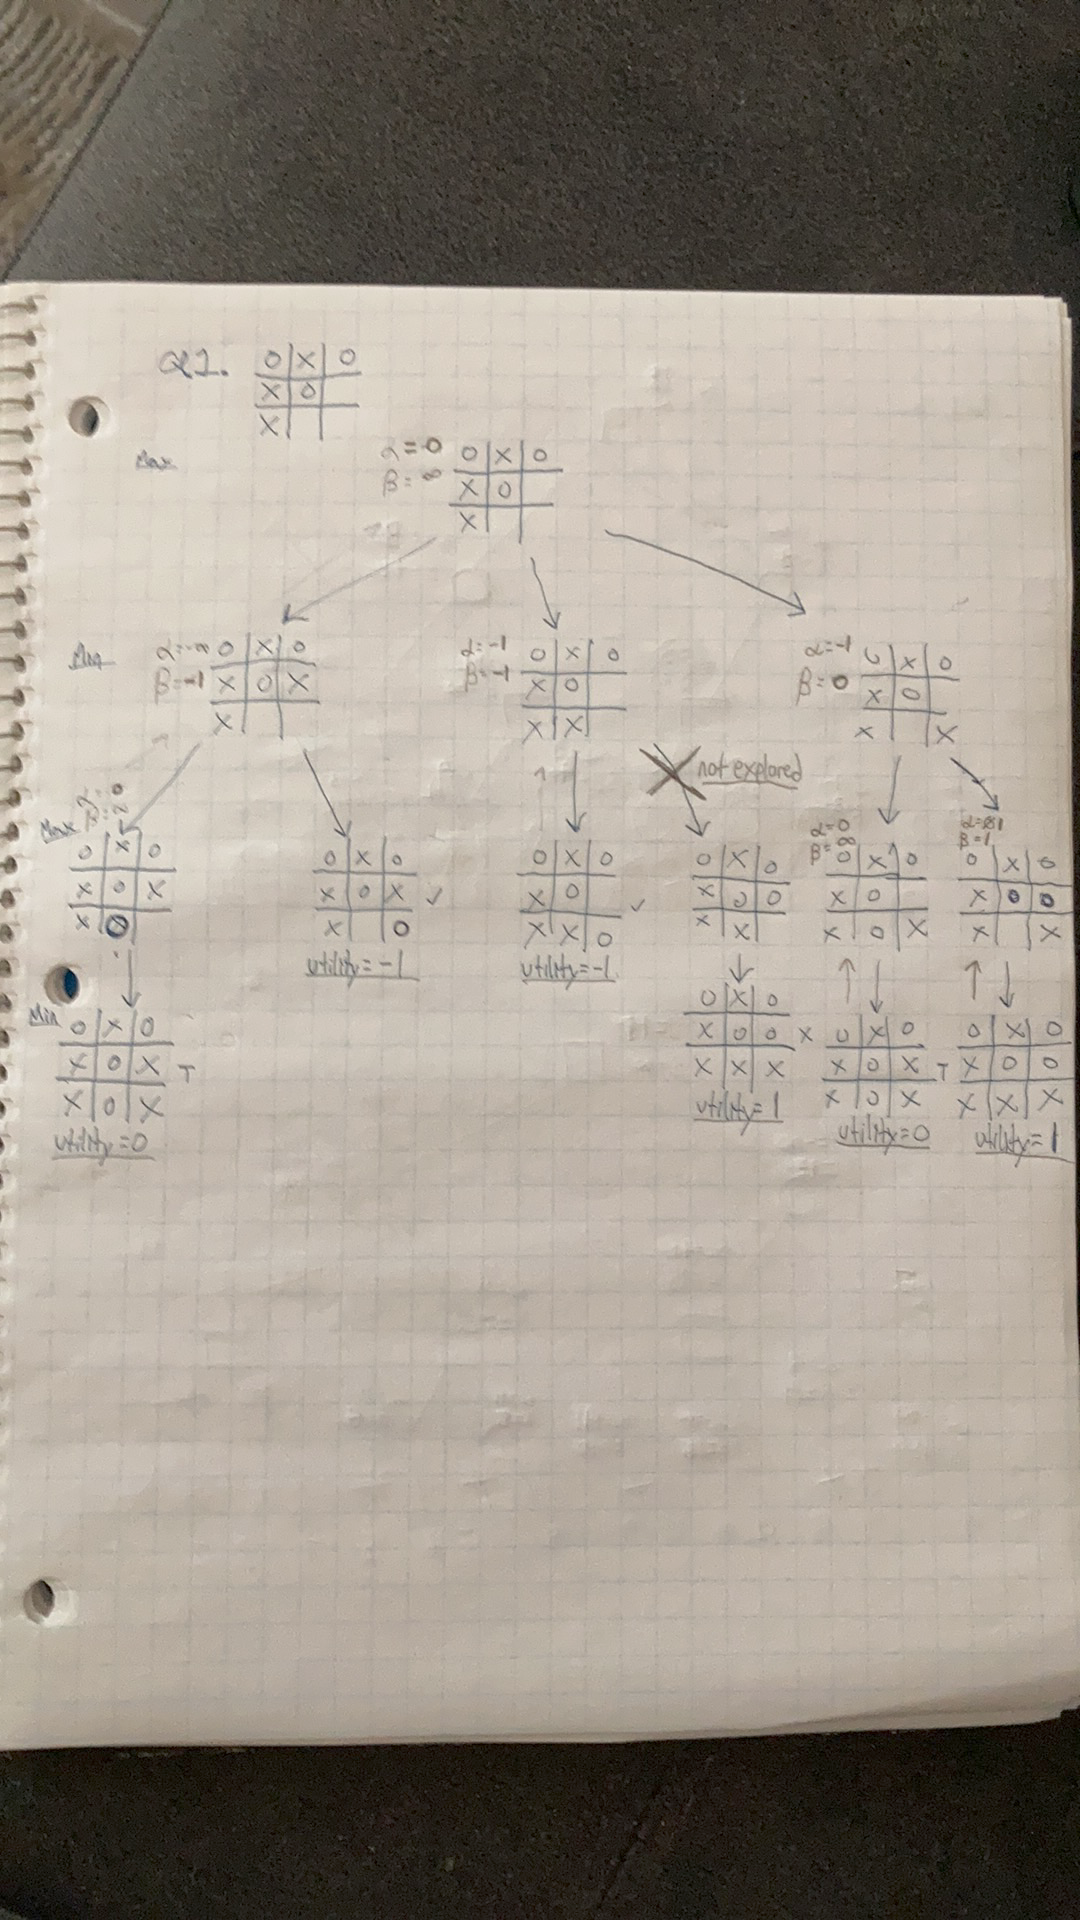 Q1. O X O
X O
X
Max
α=-0 O X O
β=∞ X O
X
Min
α=-∞ O X O
β=-1 X O X
X
α=-1 O X O
β=-1 X O
X X
α=-1 O X O
β=0 X O
X X
not explored
Max
O X O
X O X
X O
O X O
X O X
X O
utility=-1
O X O
X O
X X O
utility=-1
O X O
X O O
X X
α=0
β=∞
O X O
X O
X O X
β=1
O X O
X O O
X X
Min
O X O
X O X T
X O X
utility=0
O X O
X O O X
X X X
utility=1
O X O
X O X T
X O X
utility=0
O X O
X O O
X X X
utility=1